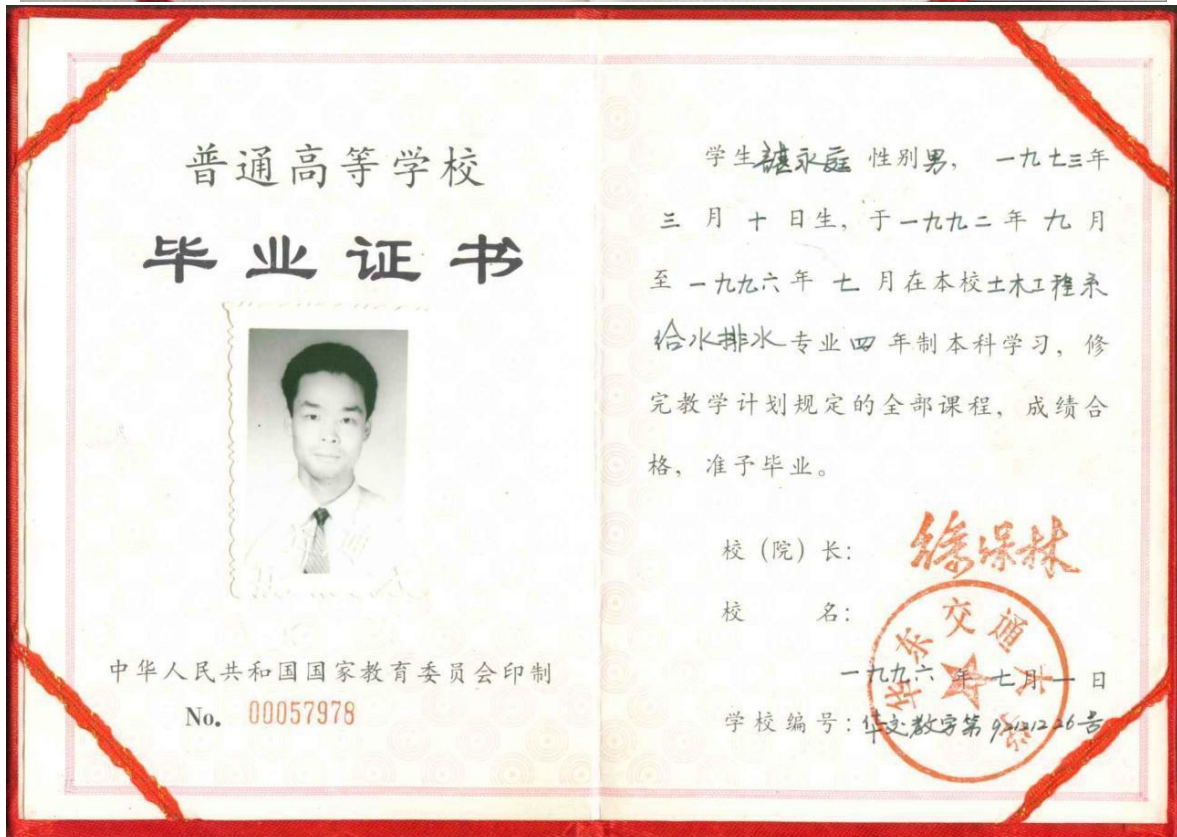 普通高等学校
毕业证书
中华人民共和国国家教育委员会印制
No. 00057978
学生谌永庭 性别男, 一九七三年
三月十日生, 于一九九二年九月
至一九九六年七月在本校土木工程系
给水排水专业四年制本科学习, 修
完教学计划规定的全部课程, 成绩合
格, 准予毕业。
校(院)长:
校 名:
华东交通大学
一九九六年七月一日
学校编号: 华交教字第